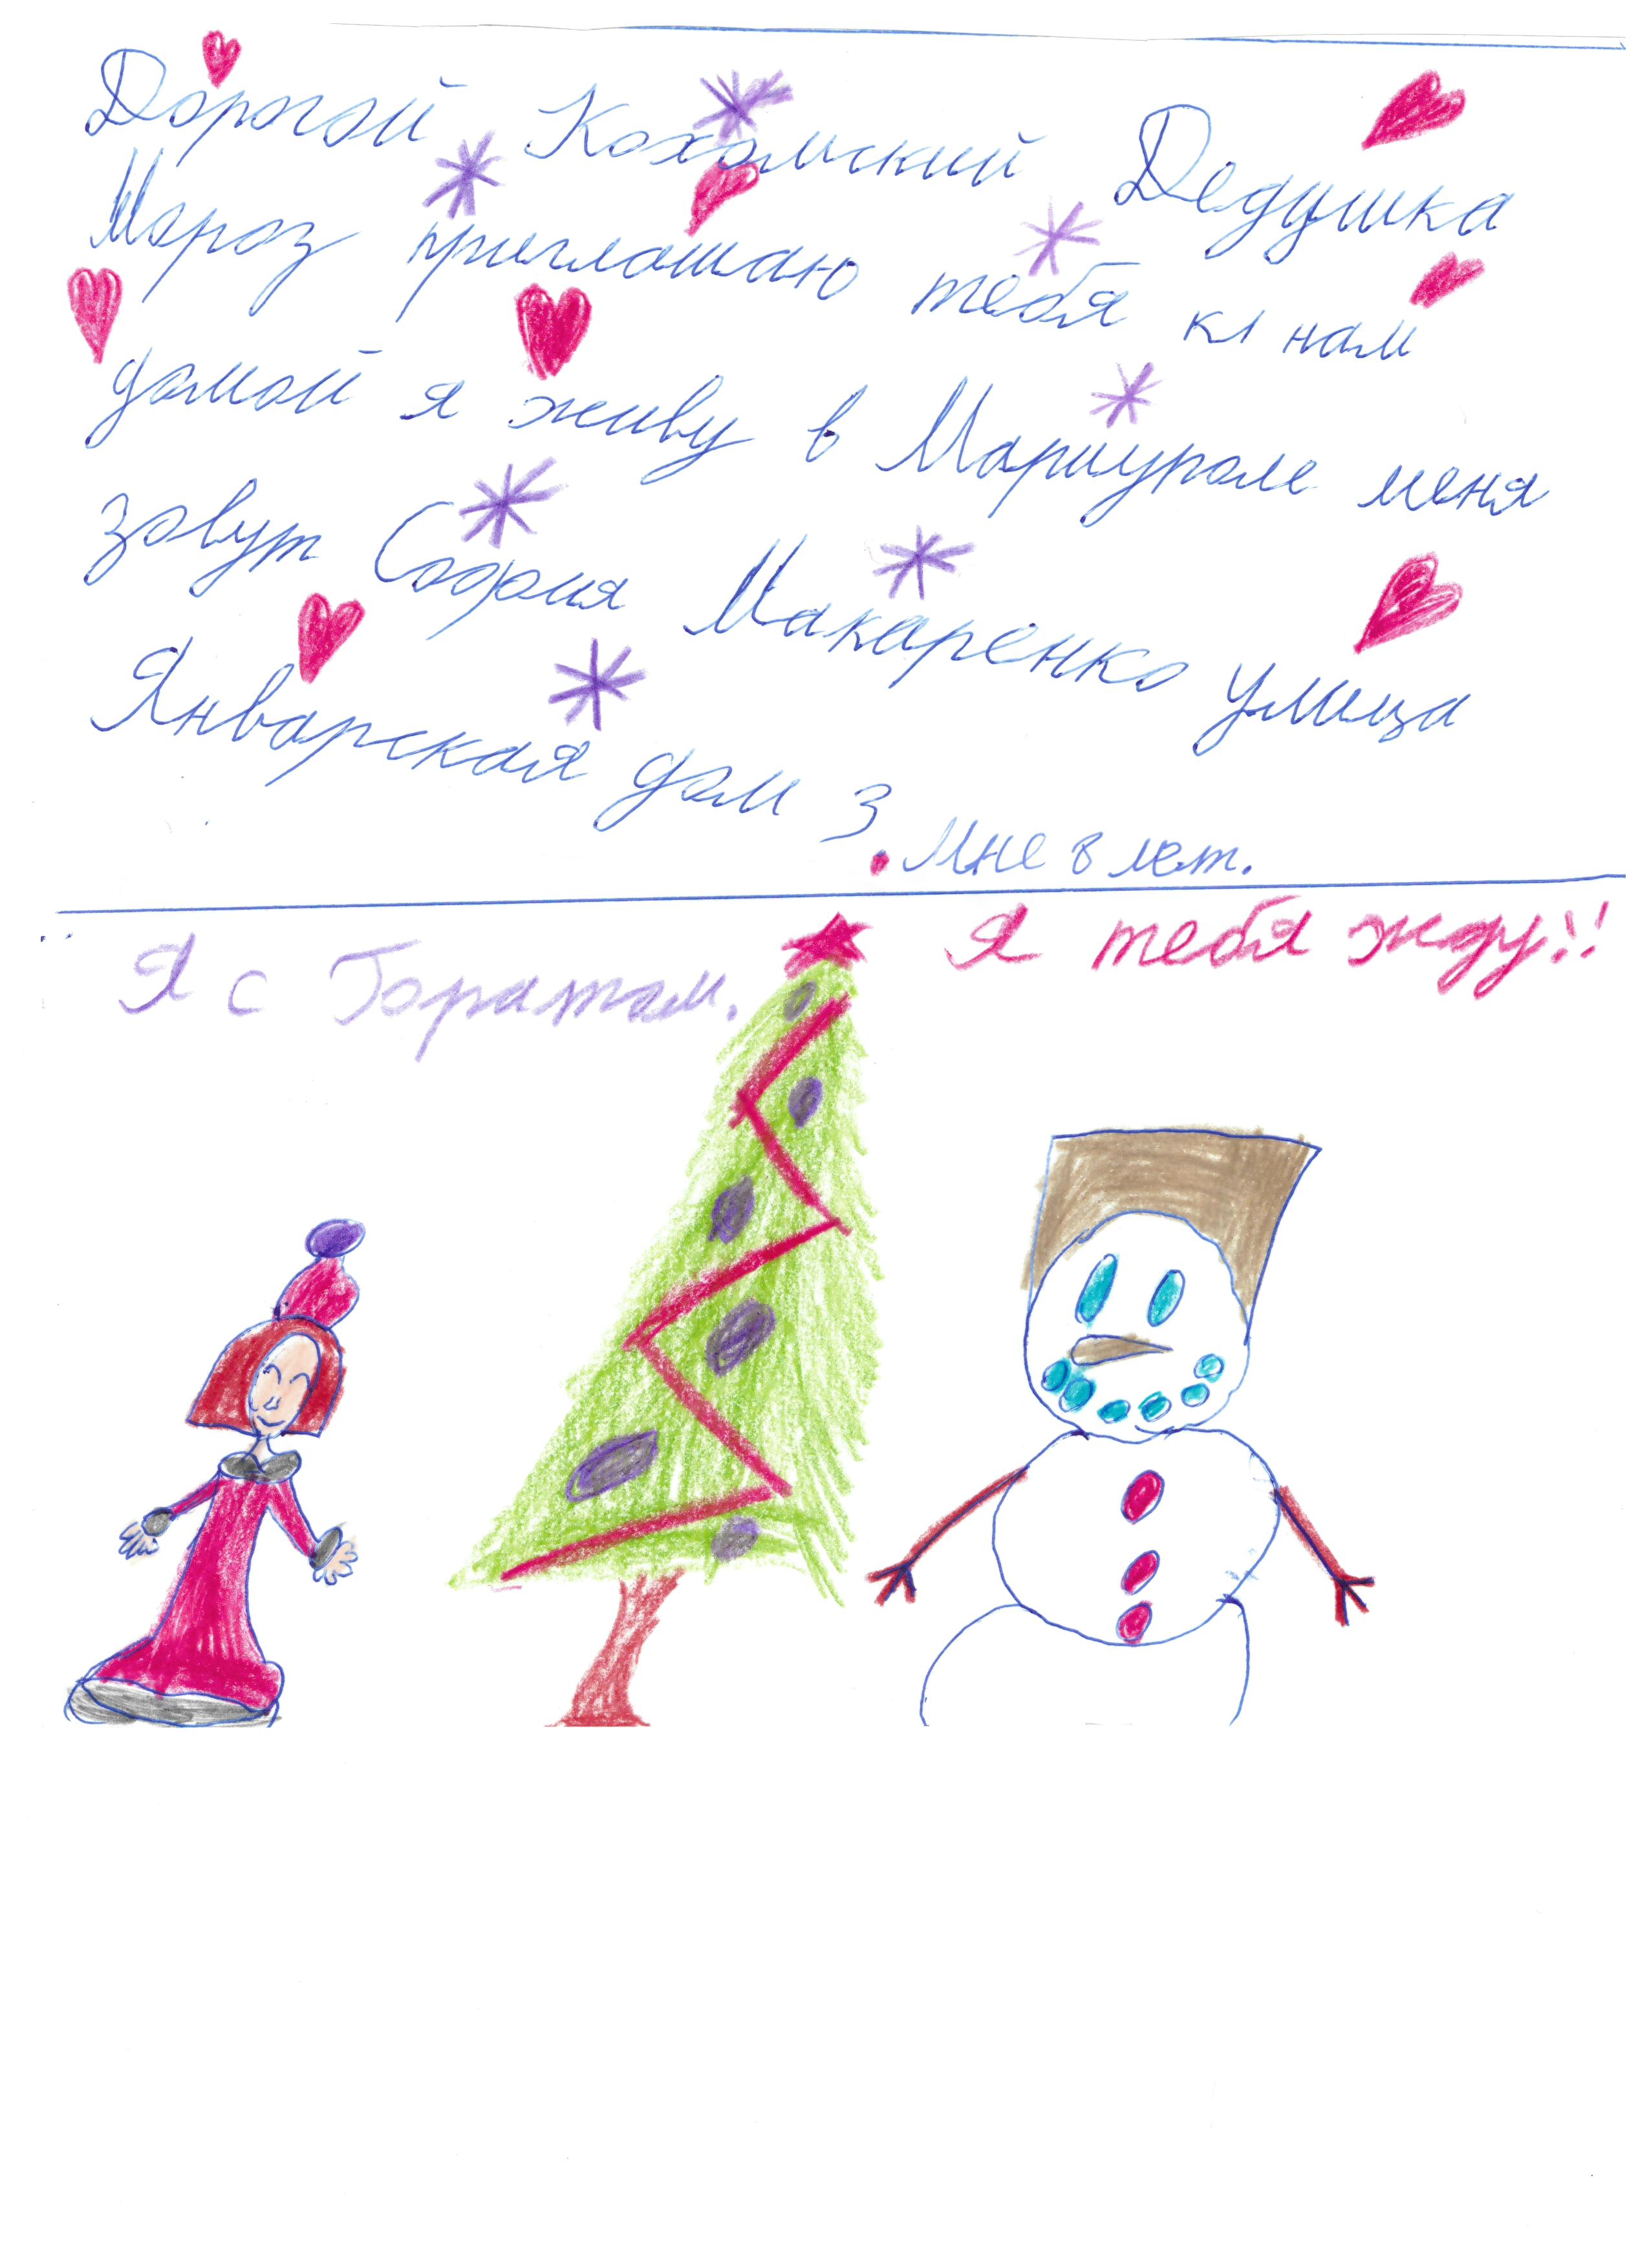 Дорогой Кохомский Дедушка
Мороз приглашаю тебя к нам
домой я живу в Мариуполе меня
зовут София Макаренко улица
Январская дом 3
. Мне 8 лет.
Я с Братом.
Я тебя жду!!